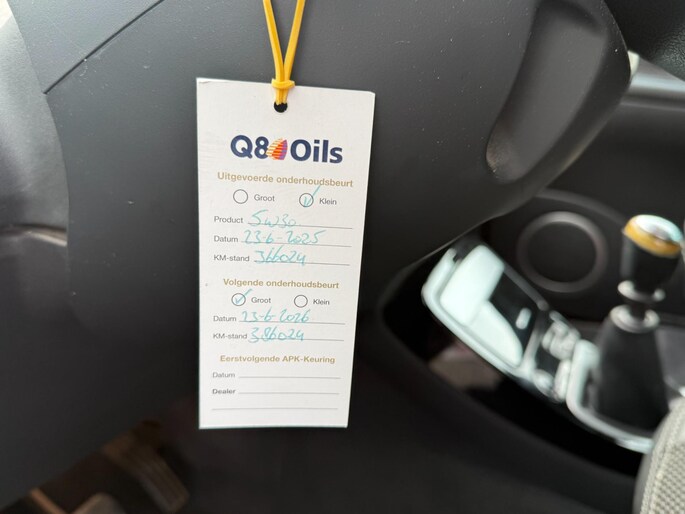 Q8 Oils
Uitgevoerde onderhoudsbeurt
Groot Klein
Product 5W30
Datum 23-6-2025
KM-stand 366024
Volgende onderhoudsbeurt
Groot Klein
Datum 23-6-2026
KM-stand 386024
Eerstvolgende APK-Keuring
Datum
Dealer